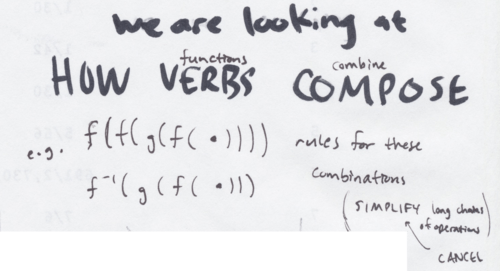 we are looking at
functions combine
HOW VERBS COMPOSE
e.g. f(f(g(f(•)))) rules for these
f⁻¹(g(f(•))) combinations
(SIMPLIFY long chains
of operations)
CANCEL